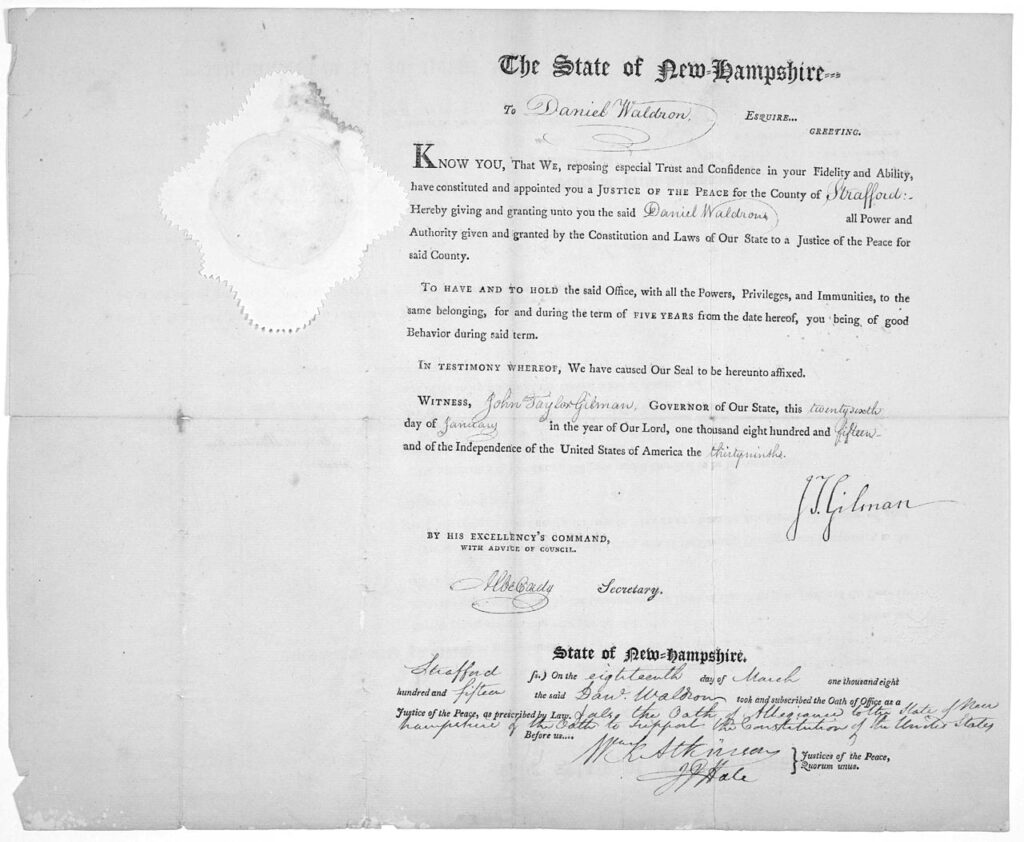 The State of New-Hampshire
To Daniel Waldron, Esquire...
GREETING.
KNOW YOU, That We, reposing especial Trust and Confidence in your Fidelity and Ability,
have constituted and appointed you a JUSTICE OF THE PEACE for the County of Strafford:-
Hereby giving and granting unto you the said Daniel Waldron, all Power and
Authority given and granted by the Constitution and Laws of Our State to a Justice of the Peace for
said County.
TO HAVE AND TO HOLD the said Office, with all the Powers, Privileges, and Immunities, to the
same belonging, for and during the term of FIVE YEARS from the date hereof, you being of good
Behavior during said term.
IN TESTIMONY WHEREOF, We have caused Our Seal to be hereunto affixed.
WITNESS, John Taylor Gilman, GOVERNOR of Our State, this twentysixth
day of January in the year of Our Lord, one thousand eight hundred and fifteen-
and of the Independence of the United States of America the thirtyninth.
J T Gilman
BY HIS EXCELLENCY'S COMMAND,
WITH ADVICE OF COUNCIL.
Secretary.
State of New-Hampshire.
Strafford ss.) On the eighteenth day of March one thousand eight
hundred and fifteen the said Danl. Waldron took and subscribed the Oath of Office as a
Justice of the Peace, as prescribed by Law. & also the Oath of Allegiance to the State of New
hampshire & the Oath to support the Constitution of the United States
Before us....
Wm K Atkinson
J P Hale
Justices of the Peace,
Quorum unus.